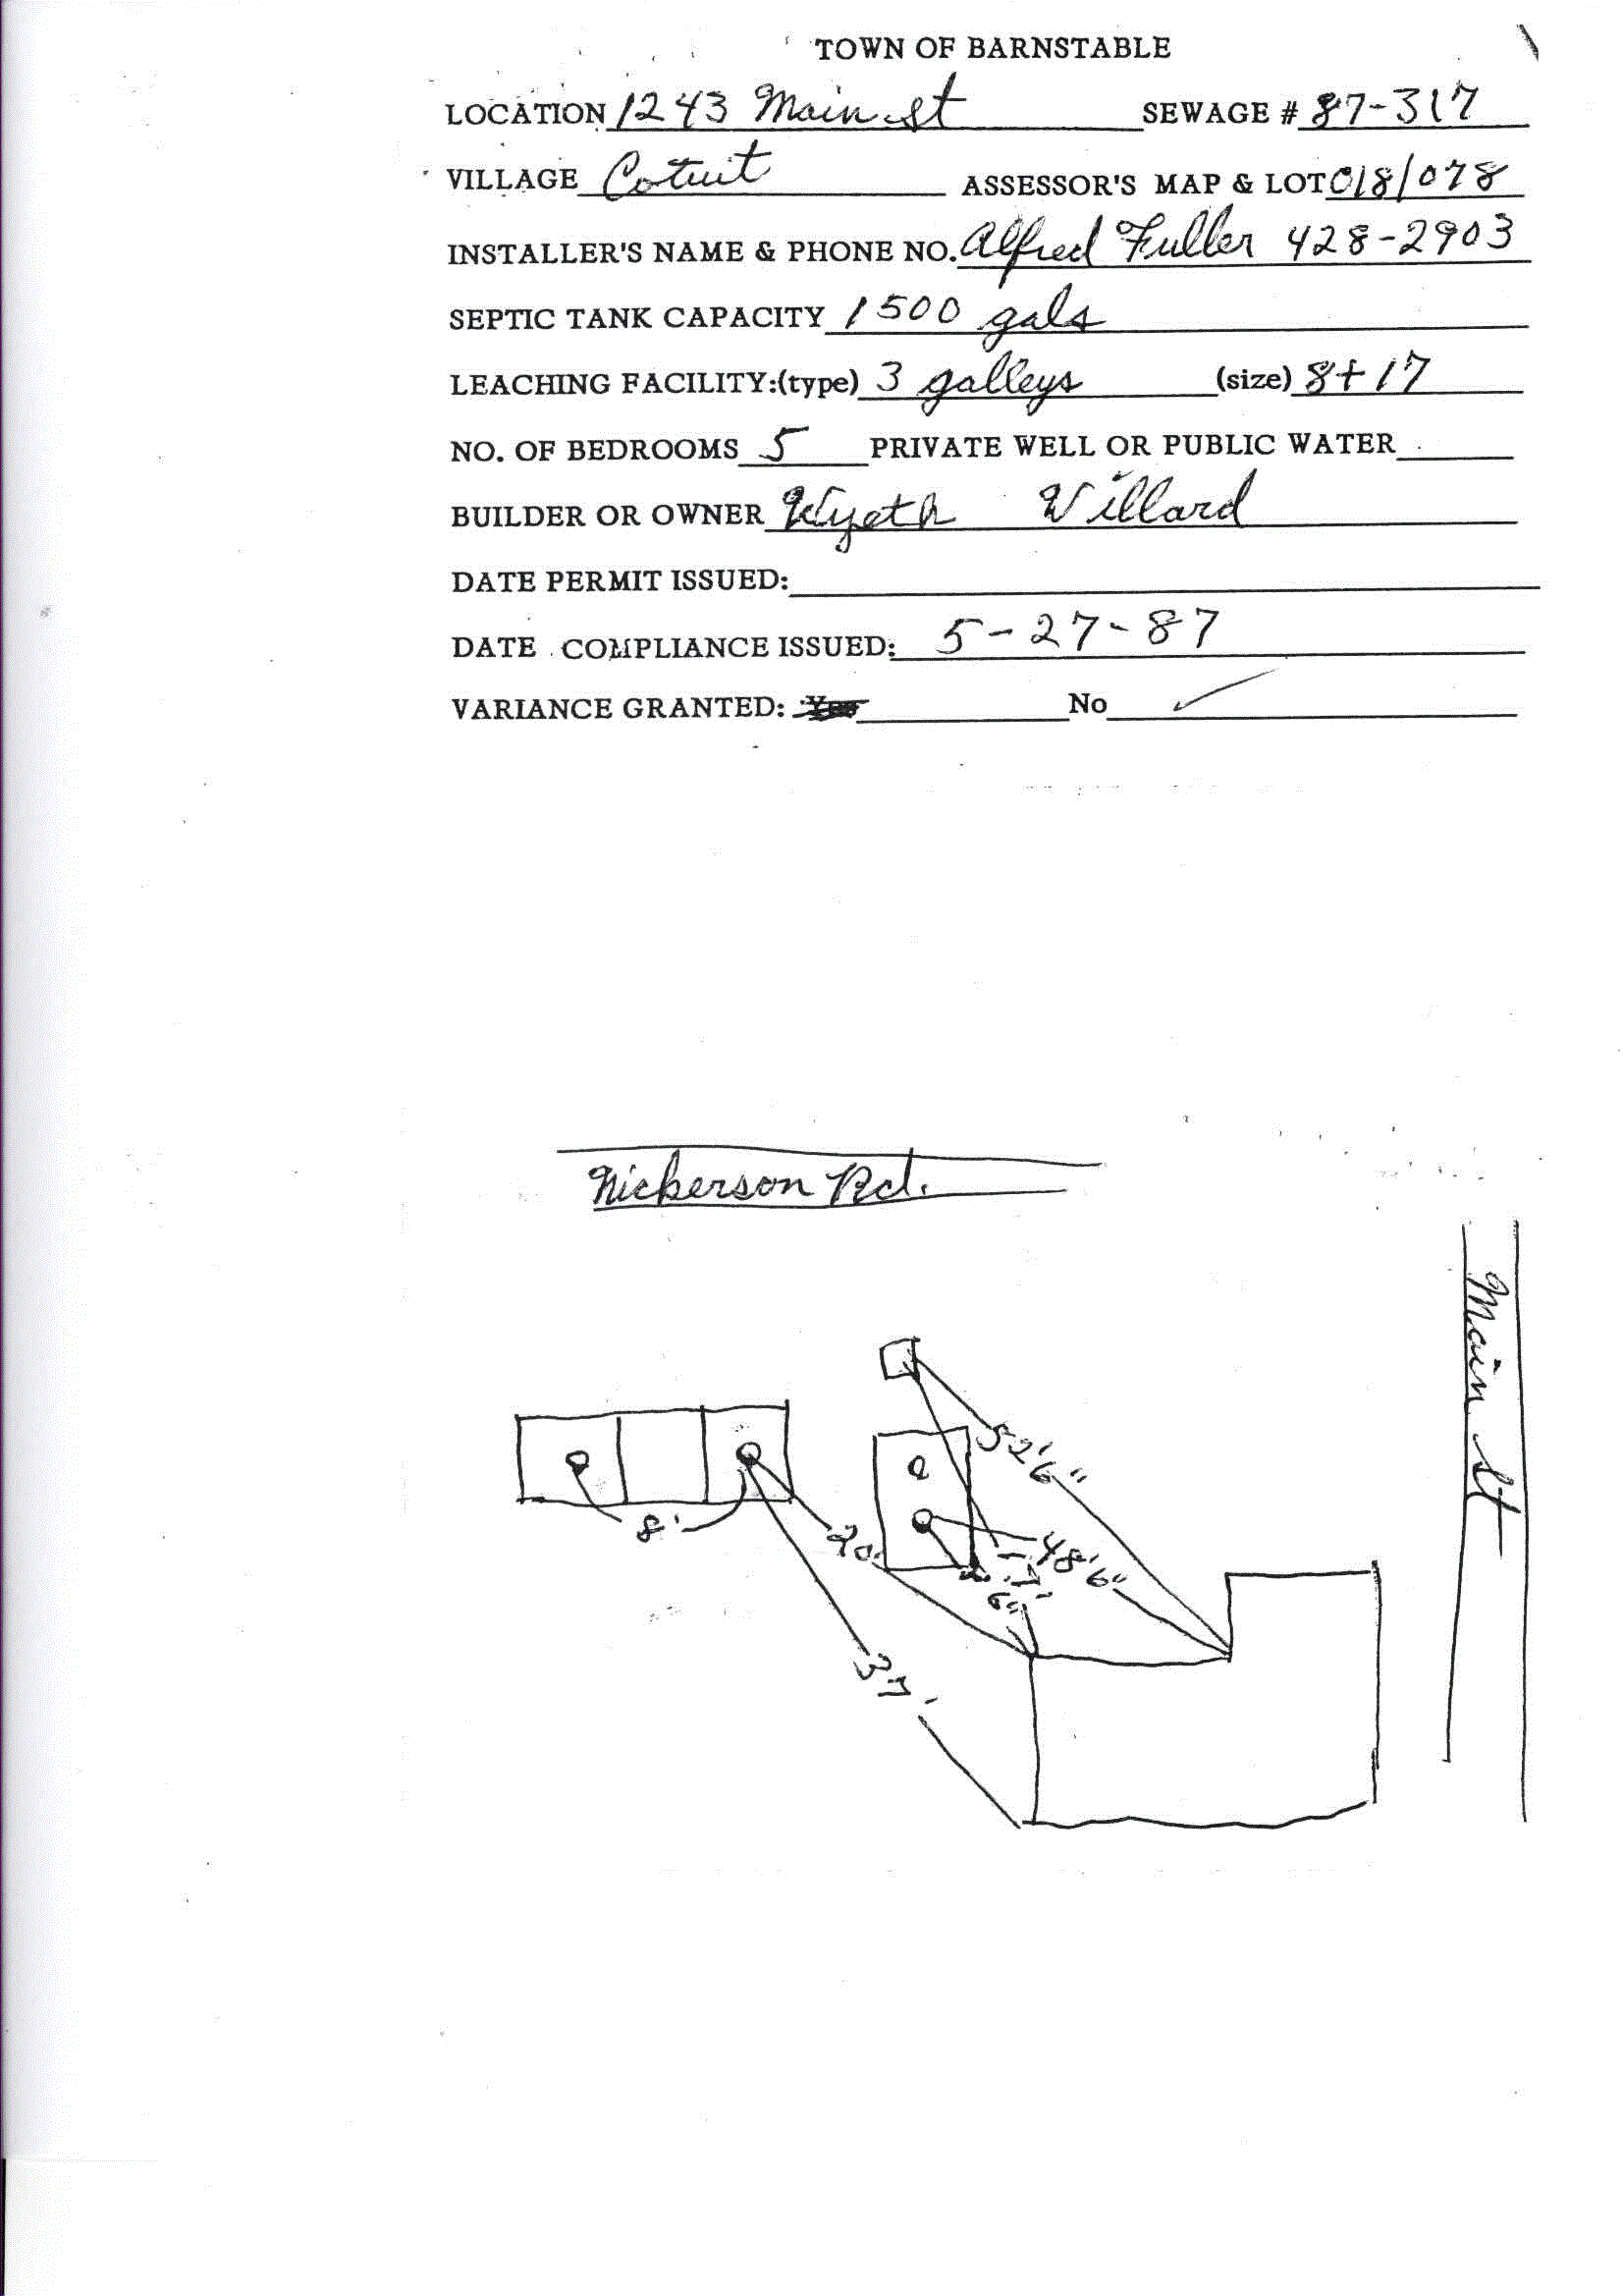 TOWN OF BARNSTABLE
LOCATION 1243 Main St SEWAGE # 87-317
VILLAGE Cotuit ASSESSOR'S MAP & LOT 018/078
INSTALLER'S NAME & PHONE NO. Alfred Fuller 428-2903
SEPTIC TANK CAPACITY 1500 gals
LEACHING FACILITY:(type) 3 galleys (size) 8+17
NO. OF BEDROOMS 5 PRIVATE WELL OR PUBLIC WATER
BUILDER OR OWNER Wyeth Willard
DATE PERMIT ISSUED:
DATE COMPLIANCE ISSUED: 5-27-87
VARIANCE GRANTED: Yes No ✓
Nickerson Rd.
Main St
52'6"
8'
20'
48'6"
6"
37'